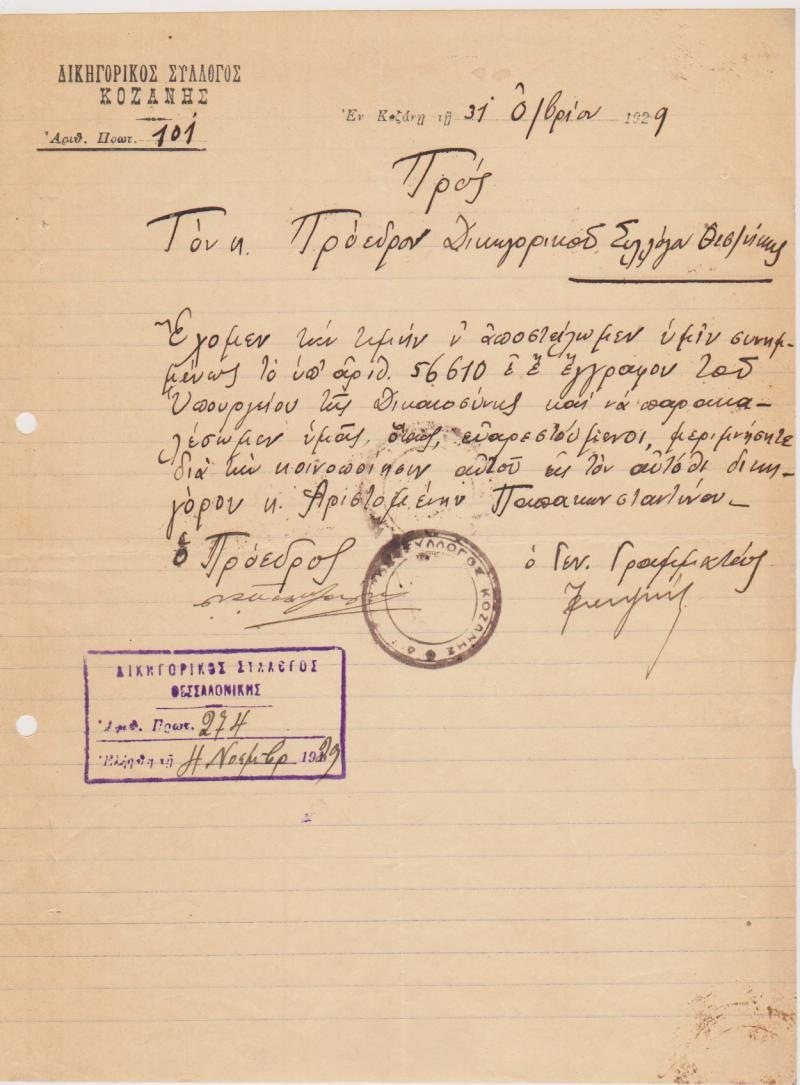 ΔΙΚΗΓΟΡΙΚΟΣ ΣΥΛΛΟΓΟΣ
ΚΟΖΑΝΗΣ
Ἀριθ. Πρωτ. 101
Ἐν Κοζάνῃ τῇ 31 Ὀ/βρίου 1929
Πρός
Τόν κ. Πρόεδρον Δικηγορικοῦ Συλλόγου Θεσ/νίκης
Ἔχομεν τήν τιμήν ν' ἀποστείλωμεν ὑμῖν συνημ-
μένως τό ὑπ' ἀριθ. 56610 ἔγγραφον τοῦ
Ὑπουργείου τῆς Δικαιοσύνης καί νά παρακα-
λέσωμεν ὑμᾶς, ὅπως, εὐαρεστούμενοι, μεριμνήσητε
διά τήν κοινοποίησιν αὐτοῦ εἰς τόν αὐτόθι δικη-
γόρον κ. Ἀριστομένην Παπακωνσταντίνου
ὁ Πρόεδρος
ὁ Γεν. Γραμματεύς
ΣΥΛΛΟΓΟΣ ΚΟΖΑΝΗΣ
ΔΙΚΗΓΟΡΙΚΟΣ ΣΥΛΛΟΓΟΣ
ΘΕΣΣΑΛΟΝΙΚΗΣ
Ἀριθ. Πρωτ. 274
Ἐλήφθη τῇ 4 Νοεμβρ 1929